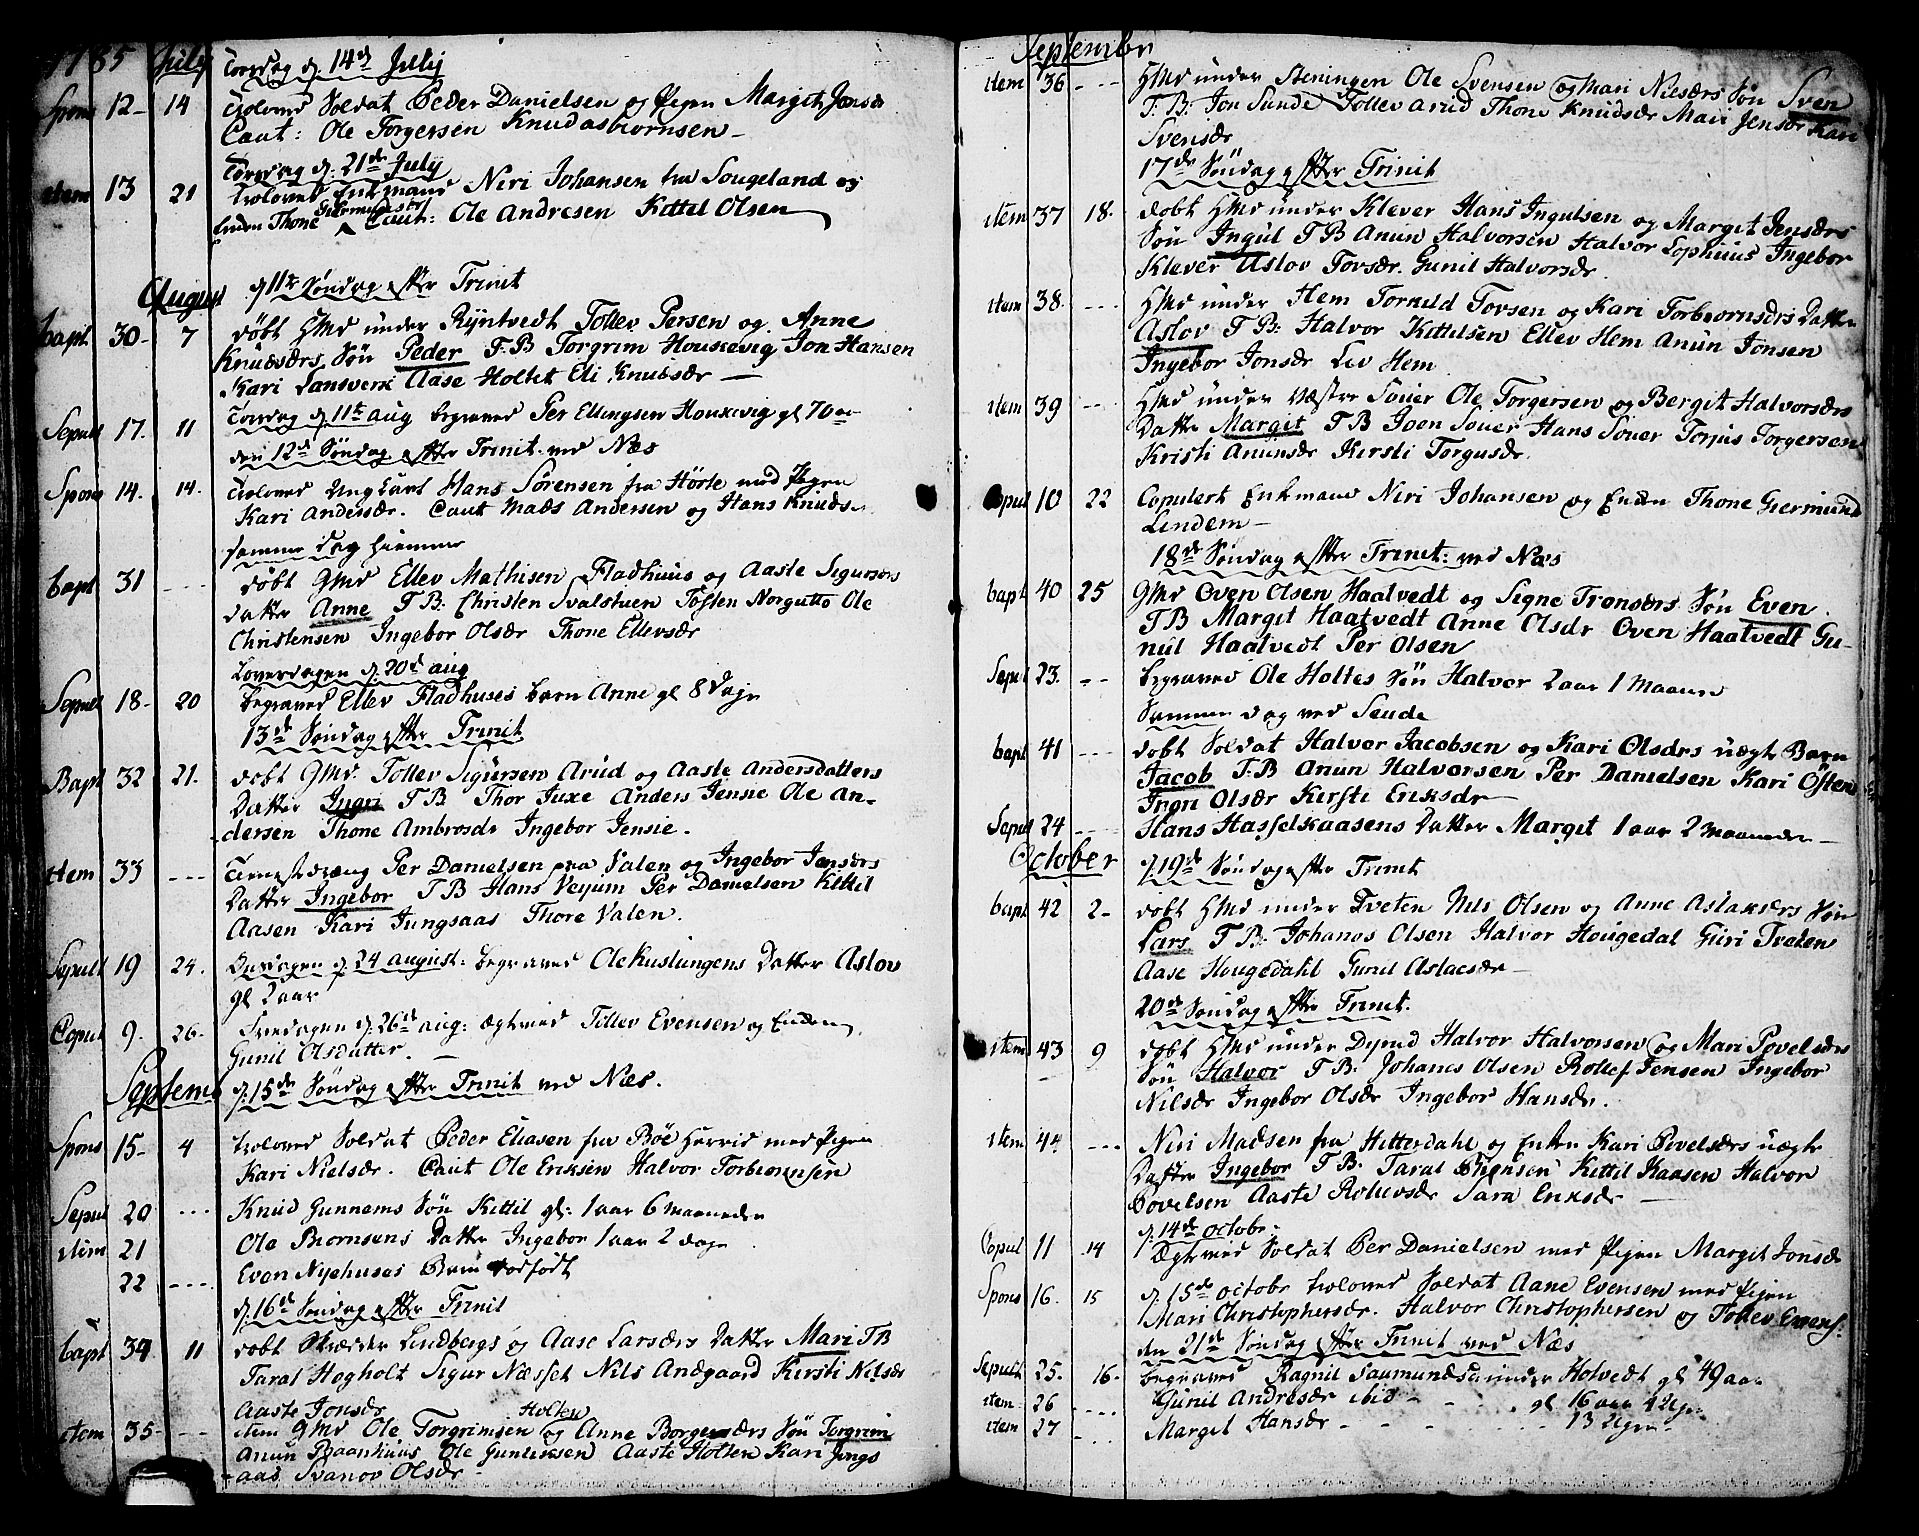 1785 July Torsdag d. 14de July
Spons 12 - 14 trolovet Soldat Peder Danielsen og Pigen Margit Jonsdr
Caut: Ole Torgersen Knud Asbiornsen -
Torsdag d. 21de July
item 13 21 trolovet Enkemand Niri Johansen fra Sougeland og
Enken Thone Giermundsdtr Caut: Ole Andresen Kittel Olsen
August d 11te Søndag efter Trinit
bapt 30 - 7 døbt Gmd under Ryntvedt Tollev Persen og Anne
Knudsdrs Søn Peder T.B Torgrim Houkevig Jon Hansen
Kari Lansverk Aase Holtet Eli Knudsdr -
Sepult 17. 11 Torsdag d. 11te aug begravet Per Ellingsen Houkevig gl 70 aar
den 12de Søndag efter Trinit. ved Næs
Spons 14. 14. trolovet Ungkarl Hans Sørensen fra Hørte med Pigen
Kari Andersdr. Caut Mads Andersen og Hans Knuds
samme Dag hiemme
bapt 31 --- døbt Gmd Ellev Mathisen Fladhuus og Aaste Sigursdrs
datter Anne T.B: Christen Svalstuen Tosten Norgutto Ole
Christensen Ingebor Olsdr Thone Ellevsdr
Løverdagen d. 20de aug
Sepult 18 - 20 begravet Ellev Fladhuses barn Anne gl 8 Dage
13de Søndag efter Trinit
Bapt 32 21. døbt Gmd. Tollev Sigursen Arud og Aaste Andersdatters
Datter Ingri T B Thor Juxe Anders Jensie Ole An-
dersen Thone Ambrosdr Ingebor Jensie.
item 33 --- Tienestedreng Per Danielsen paa Valen og Ingebor Jonsdrs
Datter Ingebor T B Hans Veyum Per Danielsen Kittil
Aasen Kari Jungsaas Thore Valen.
Sepult 19 24. Onsdagen d 24 august: begravet Ole Kuslungens Datter Aslov
gl 2 aar
Copul 9. 26. Fredagen d. 26de aug: Ægteviet Tollev Evensen og Enken
Gunil Olsdatter. -
Septemb d. 15de Søndag efter Trinit ved Næs.
Spons 15 - 4 trolovet Soldat Peder Eliasen fra Bøe Herrid med Pigen
Kari Nielsdr. Caut Ole Eriksen Halvor Torbiornsen
Sepul 20 --- Knud Gunnems Søn Kittil gl: 1 aar 6 maaneder
item 21 Ole Biornsens Datter Ingebor 1 aar 2 dage
22 --- Even Nyehuses Barn dødfødt
d. 16de Søndag efter Trinit
bapt 34 11 døbt Skrædder Lindbergs og Aase Larsdrs Datter Mari T B
Taral Høgholt Sigur Næsset Nils Andgaard Kirsti Nelsdr
Aaste Jonsdr
item 35 - -- item Gmd Ole Torgrimsen Holten og Anne Borgersdrs Søn Torgrim
Anun Baanhuus Ole Gunleiksen Aaste Holten Kari Jungs
aas Svanov Olsdr -
September
item 36 --- Hmd under Steningen Ole Svensen og Mari Nielsdrs Søn Sven
T. B: Jon Sunde Tollev Arud Thone Knudsdr Mari Jensdr Kari
Svensdr
17de Søndag efter Trinit
item 37 18. døbt Hmd under Klever Hans Ingulsen og Margit Jensdrs
Søn Ingul T B Anun Halvorsen Halvor Lophuus Ingebor
Klever Aslov Tovsdr. Gunil Halvorsdr.
item 38. --- Hmd under Hem Torkild Tovsen og Kari Torbiornsdrs Datter
Aslov T. B: Halvor Kittilsen Ellev Hem Anun Jonsen
Ingebor Jonsdr Liv Hem
item 39 --- Hmd under Vestre Souer Ole Torgersen og Bergit Halvorsdrs
Datter Margit T B Joen Souer Hans Souer Torjus Torgersen
Kristi Anunsdr Kirsti Torgusdr
Copul 10 22 Copulert Enkemand Niri Johansen og Enken Thone Giermund
Lindem -
18de Søndag efter Trinit: ved Næs
bapt 40 25 Gmd Oven Olsen Haatvedt og Signe Tronsdrs Søn Even.
T B Margit Haatvedt Anne Olsdr Oven Haatvedt Gu-
nul Haatvedt Per Olsen
Sepul 23. -- begravet Ole Holtes Søn Halvor 2 aar 1 Maaned
Sammen dag ved Seude
bapt 41 --- døbt Soldat Halvor Jacobsen og Kari Olsdrs uægt Barn
Jacob T. B Anun Halvorsen Per Danielsen Kari Osten
Ingri Olsdr Kirsti Eriksdr -
Sepul 24 --- Hans Hasselkaasens Datter Margit 1 aar 2 maaneder -
October d. 19de Søndag efter Trinit
bapt 42 2 - døbt Hmd under Tveten Nils Olsen og Anne Aslaksdrs Søn
Lars T. B: Johanes Olsen Halvor Hougedal Guri Tveten
Aase Hougedahl Gunil Aslacsdr -
20de Søndag efter Trinit.
item 43 9 døbt Hmd under Dyrud Halvor Halvorsen og Mari Povelsdrs
Søn Halvor T. B: Johanes Olsen Rollef Jensen Ingebor
Nilsdr Ingebor Olsdr Ingebor Hansdr.
item 44 --- Niri Madsen fra Hitterdahl og Enken Kari Povelsdrs uægte
Datter Ingebor T B: Taral Kittil Kaasen Halvor
Povelsen Aaste Rolievsdr Sara Eriksdr -
d. 14de octobr.
Copul 11 14 Ægteviet Soldat Per Danielsen med Pigen Margit Jonsdr
Spons 16. 15 d. 15de octobr trolovet Soldat Aane Evensen med Pigen
Mari Christophersdr. Halvor Christophersen og Tollev Evens.
den 21de Søndag efter Trinit ved Næs
Sepult 25. 16. begravet Ragnil Saumundsd under Hotvedt gl 49 aar
item 26 ---- Gunil Andresdr ibid - - - gl 16 aar 4 Uger
item 27 - --- Margit Hansdr - - - - 13 Uger -